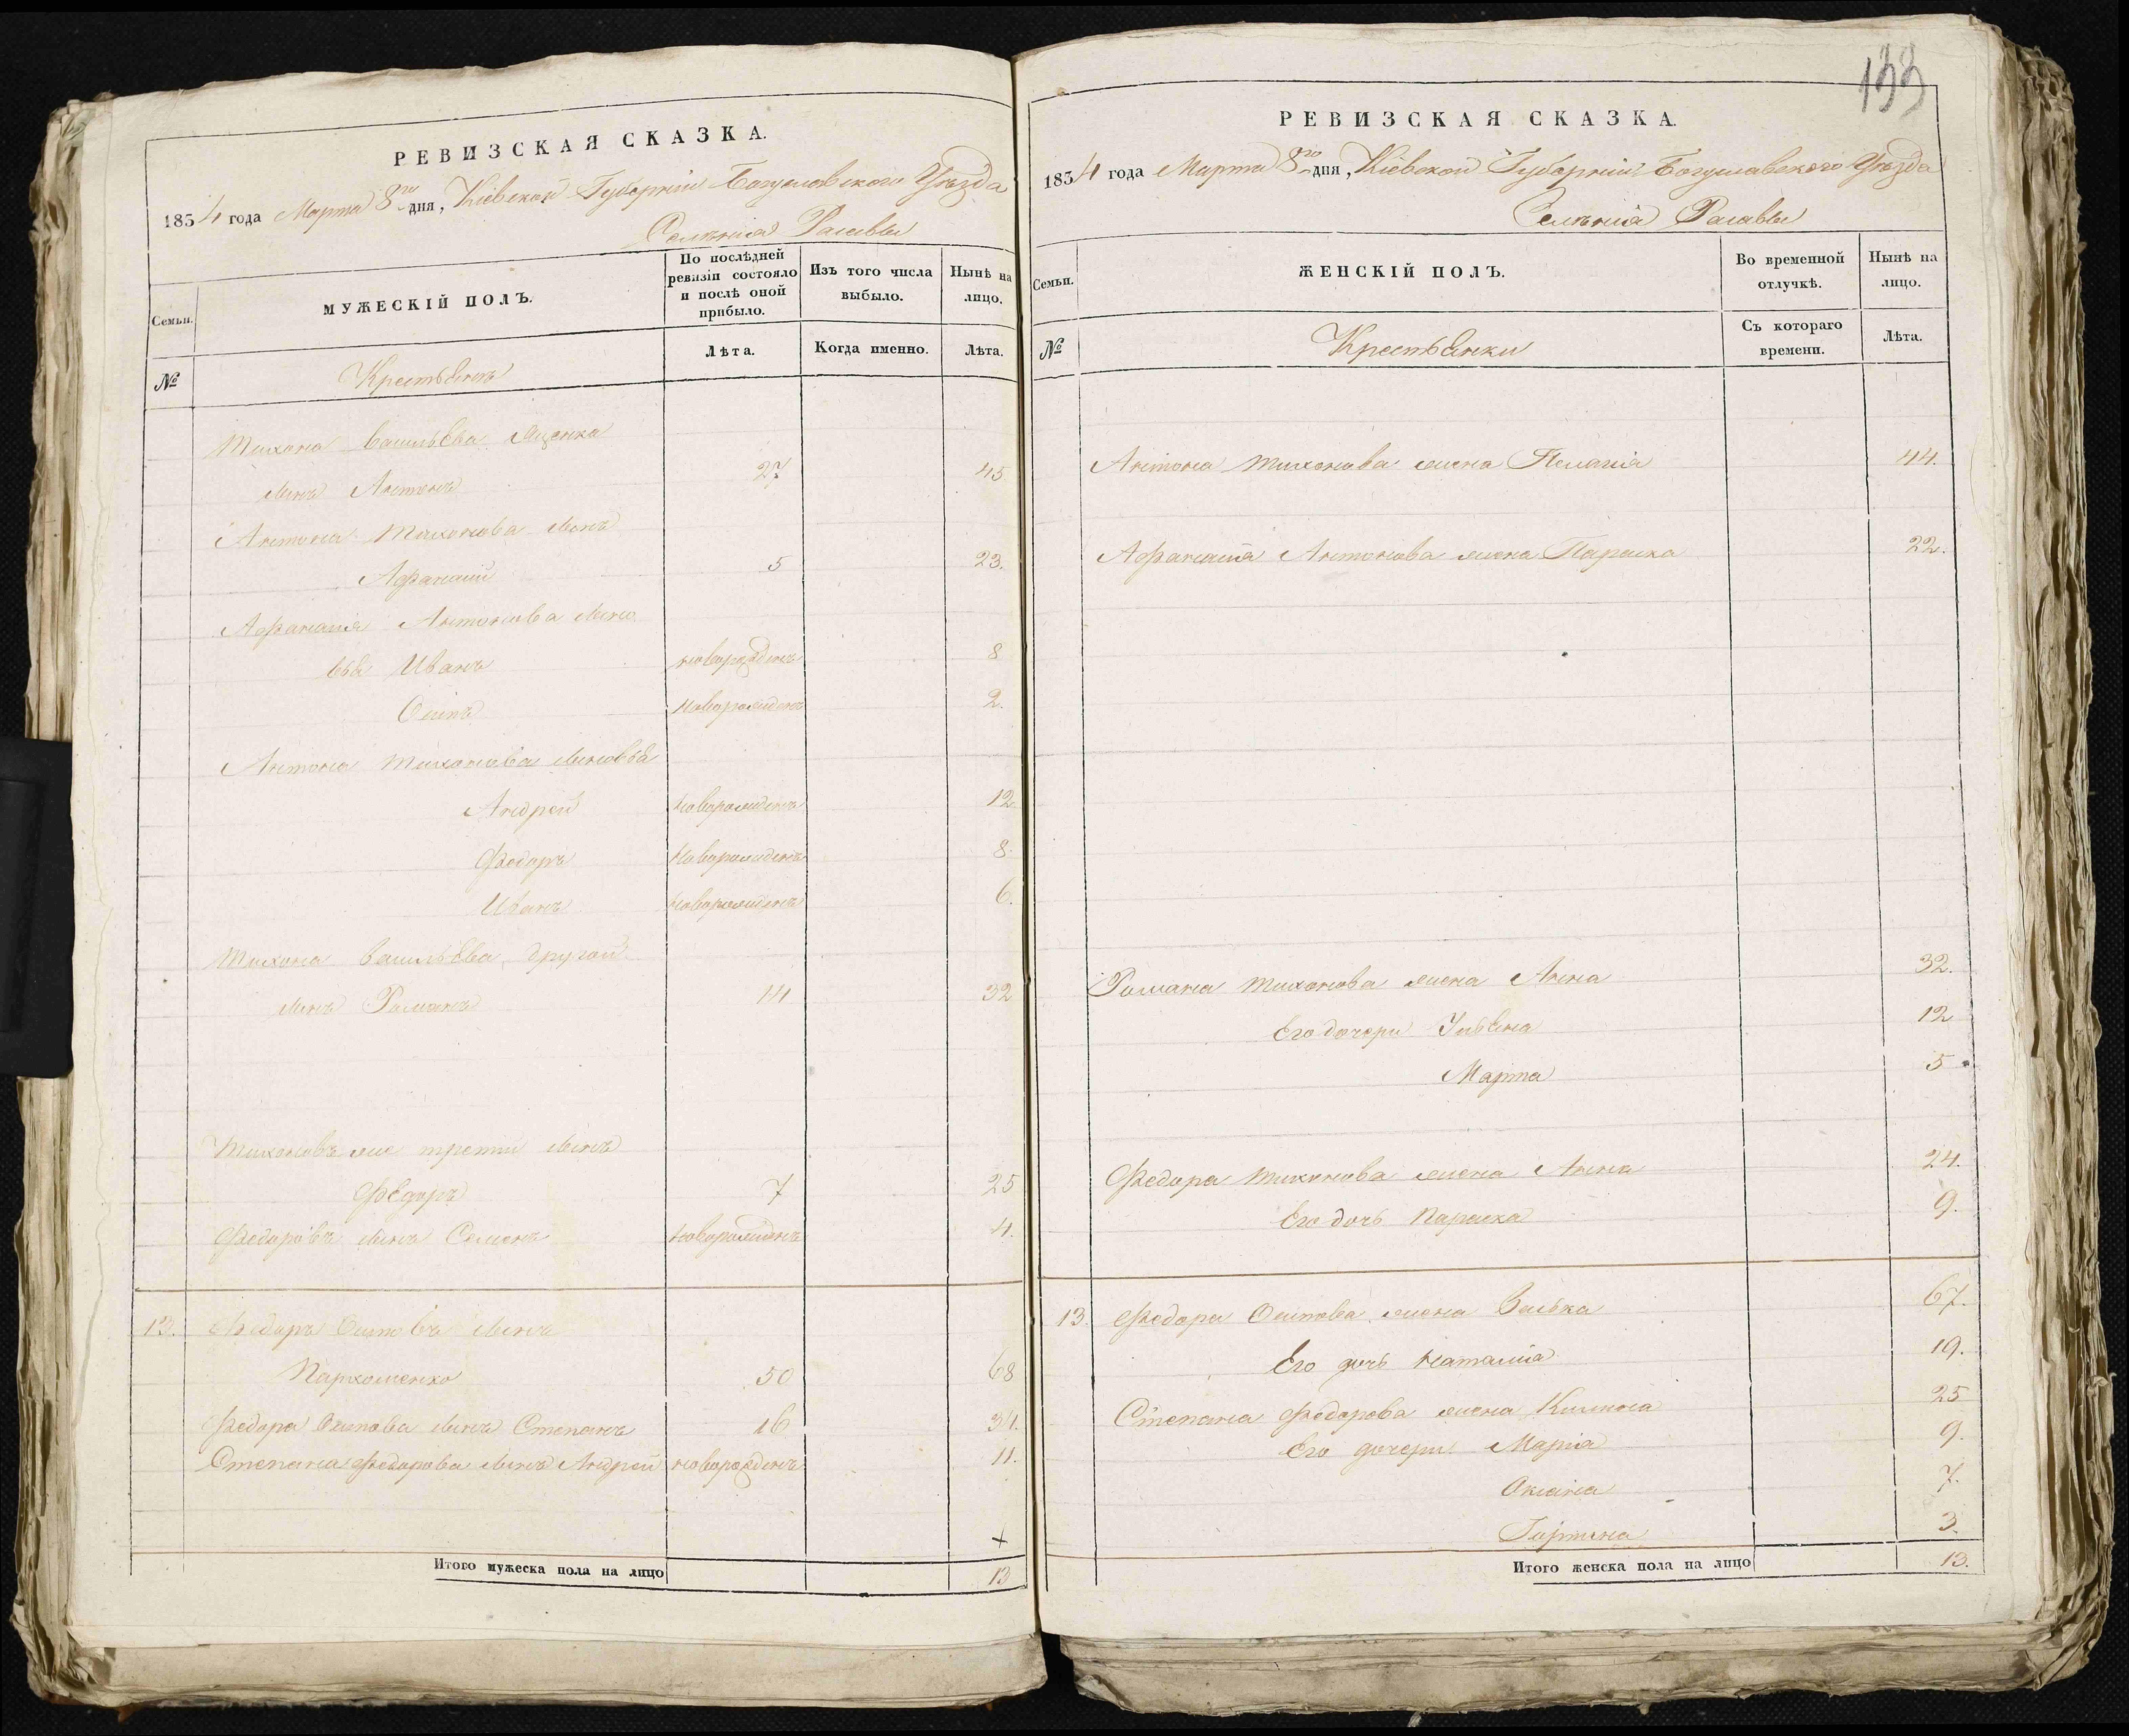 РЕВИЗСКАЯ СКАЗКА.
1834 года Марта 8го дня, Кіевской Губерніи Богуславского Уѣзда
Селѣнія Расавы
Семьи.
МУЖЕСКІЙ ПОЛЪ.
По послѣдней ревизіи состояло и послѣ оной прибыло.
Изъ того числа выбыло.
Нынѣ на лицо.
№
Крестьянъ
Лѣта.
Когда именно.
Лѣта.
Тихона Васильева Яценка
сынъ Антонъ 27 45
Антона Тихонова сынъ
Афанасій 5 23.
Афанасія Антонова сыно
вья Иванъ новорожденъ 8
Осипъ новорожденъ 2.
Антона Тихонова сыновья
Андрей новорожденъ 12
Федоръ новорожденъ 8.
Иванъ новорожденъ 6.
Тихона Васильева другой
сынъ Романъ 14 32
Тихоновъ же третій сынъ
Федоръ 7 25
Федоровъ сынъ Семенъ новорожденъ 4.
13. Федоръ Осиповъ сынъ
Пархоменко 50 68
Федора Осипова сынъ Степанъ 16 34.
Степана Федорова сынъ Андрей новорожденъ 11.
Итого мужеска пола на лицо 13
133
РЕВИЗСКАЯ СКАЗКА.
1834 года Марта 8го дня, Кіевской Губерніи Богуславского Уѣзда
Селѣнія Расавы
Семьи.
ЖЕНСКІЙ ПОЛЪ.
Во временной отлучкѣ.
Нынѣ на лицо.
№
Крестьянки
Съ котораго времени.
Лѣта.
Антона Тихонова жена Пелагія 44.
Афанасія Антонова жена Параска 22.
Романа Тихонова жена Анна 32.
Его дочери Ульяна 12
Марта 5
Федора Тихонова жена Анна 24.
Его дочь Параска 9.
13. Федора Осипова жена 67.
Его дочь Наталія 19.
Степана Федорова жена 25
Его дочери Марія 9.
Оксана 7.
3.
Итого женска пола на лицо 13.